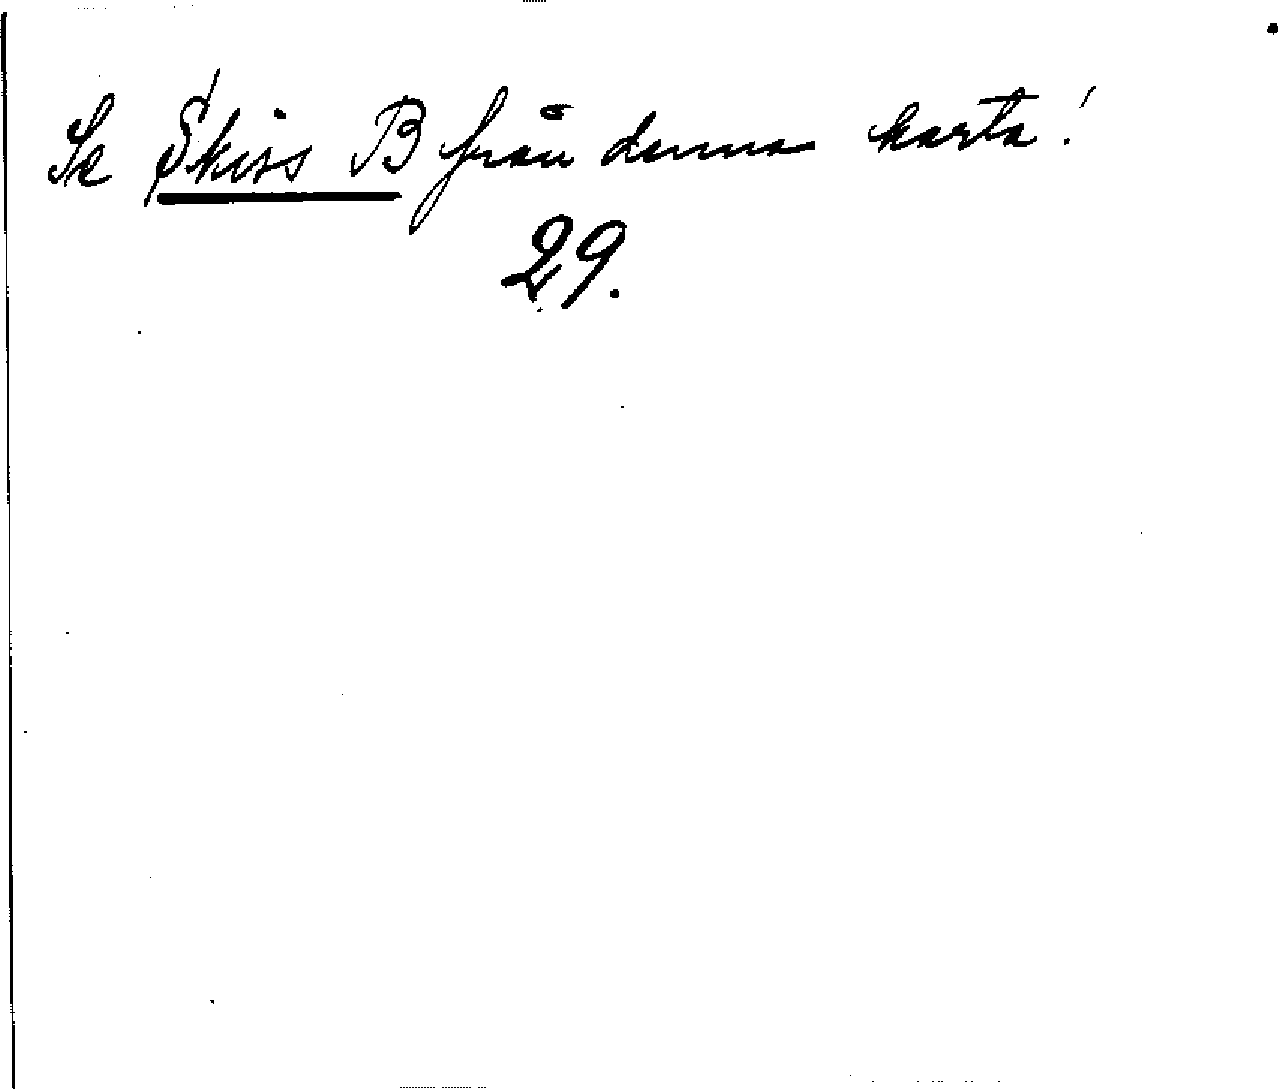 Se Skiss B från denna karta!
29.